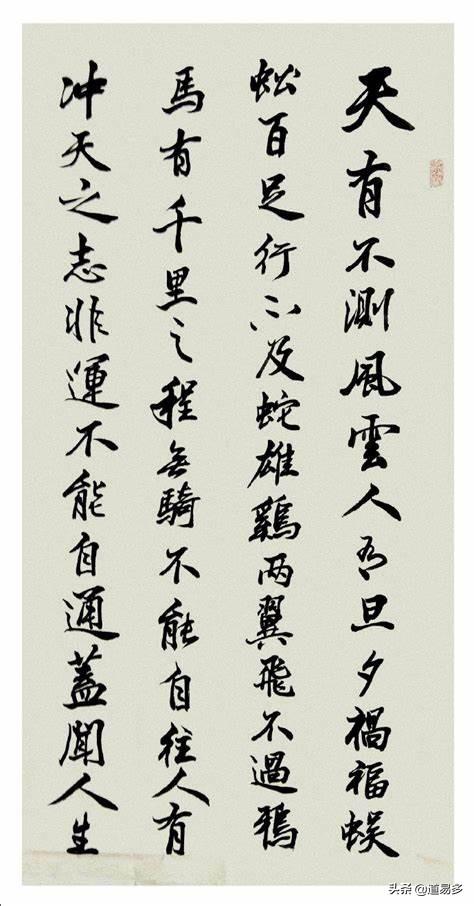 天有不測風雲人有旦夕禍福蜈
蚣百足行不及蛇雄鷄两翼飛不過鴉
馬有千里之程無騎不能自往人有
冲天之志非運不能自通蓋聞人生
头条 @道易多